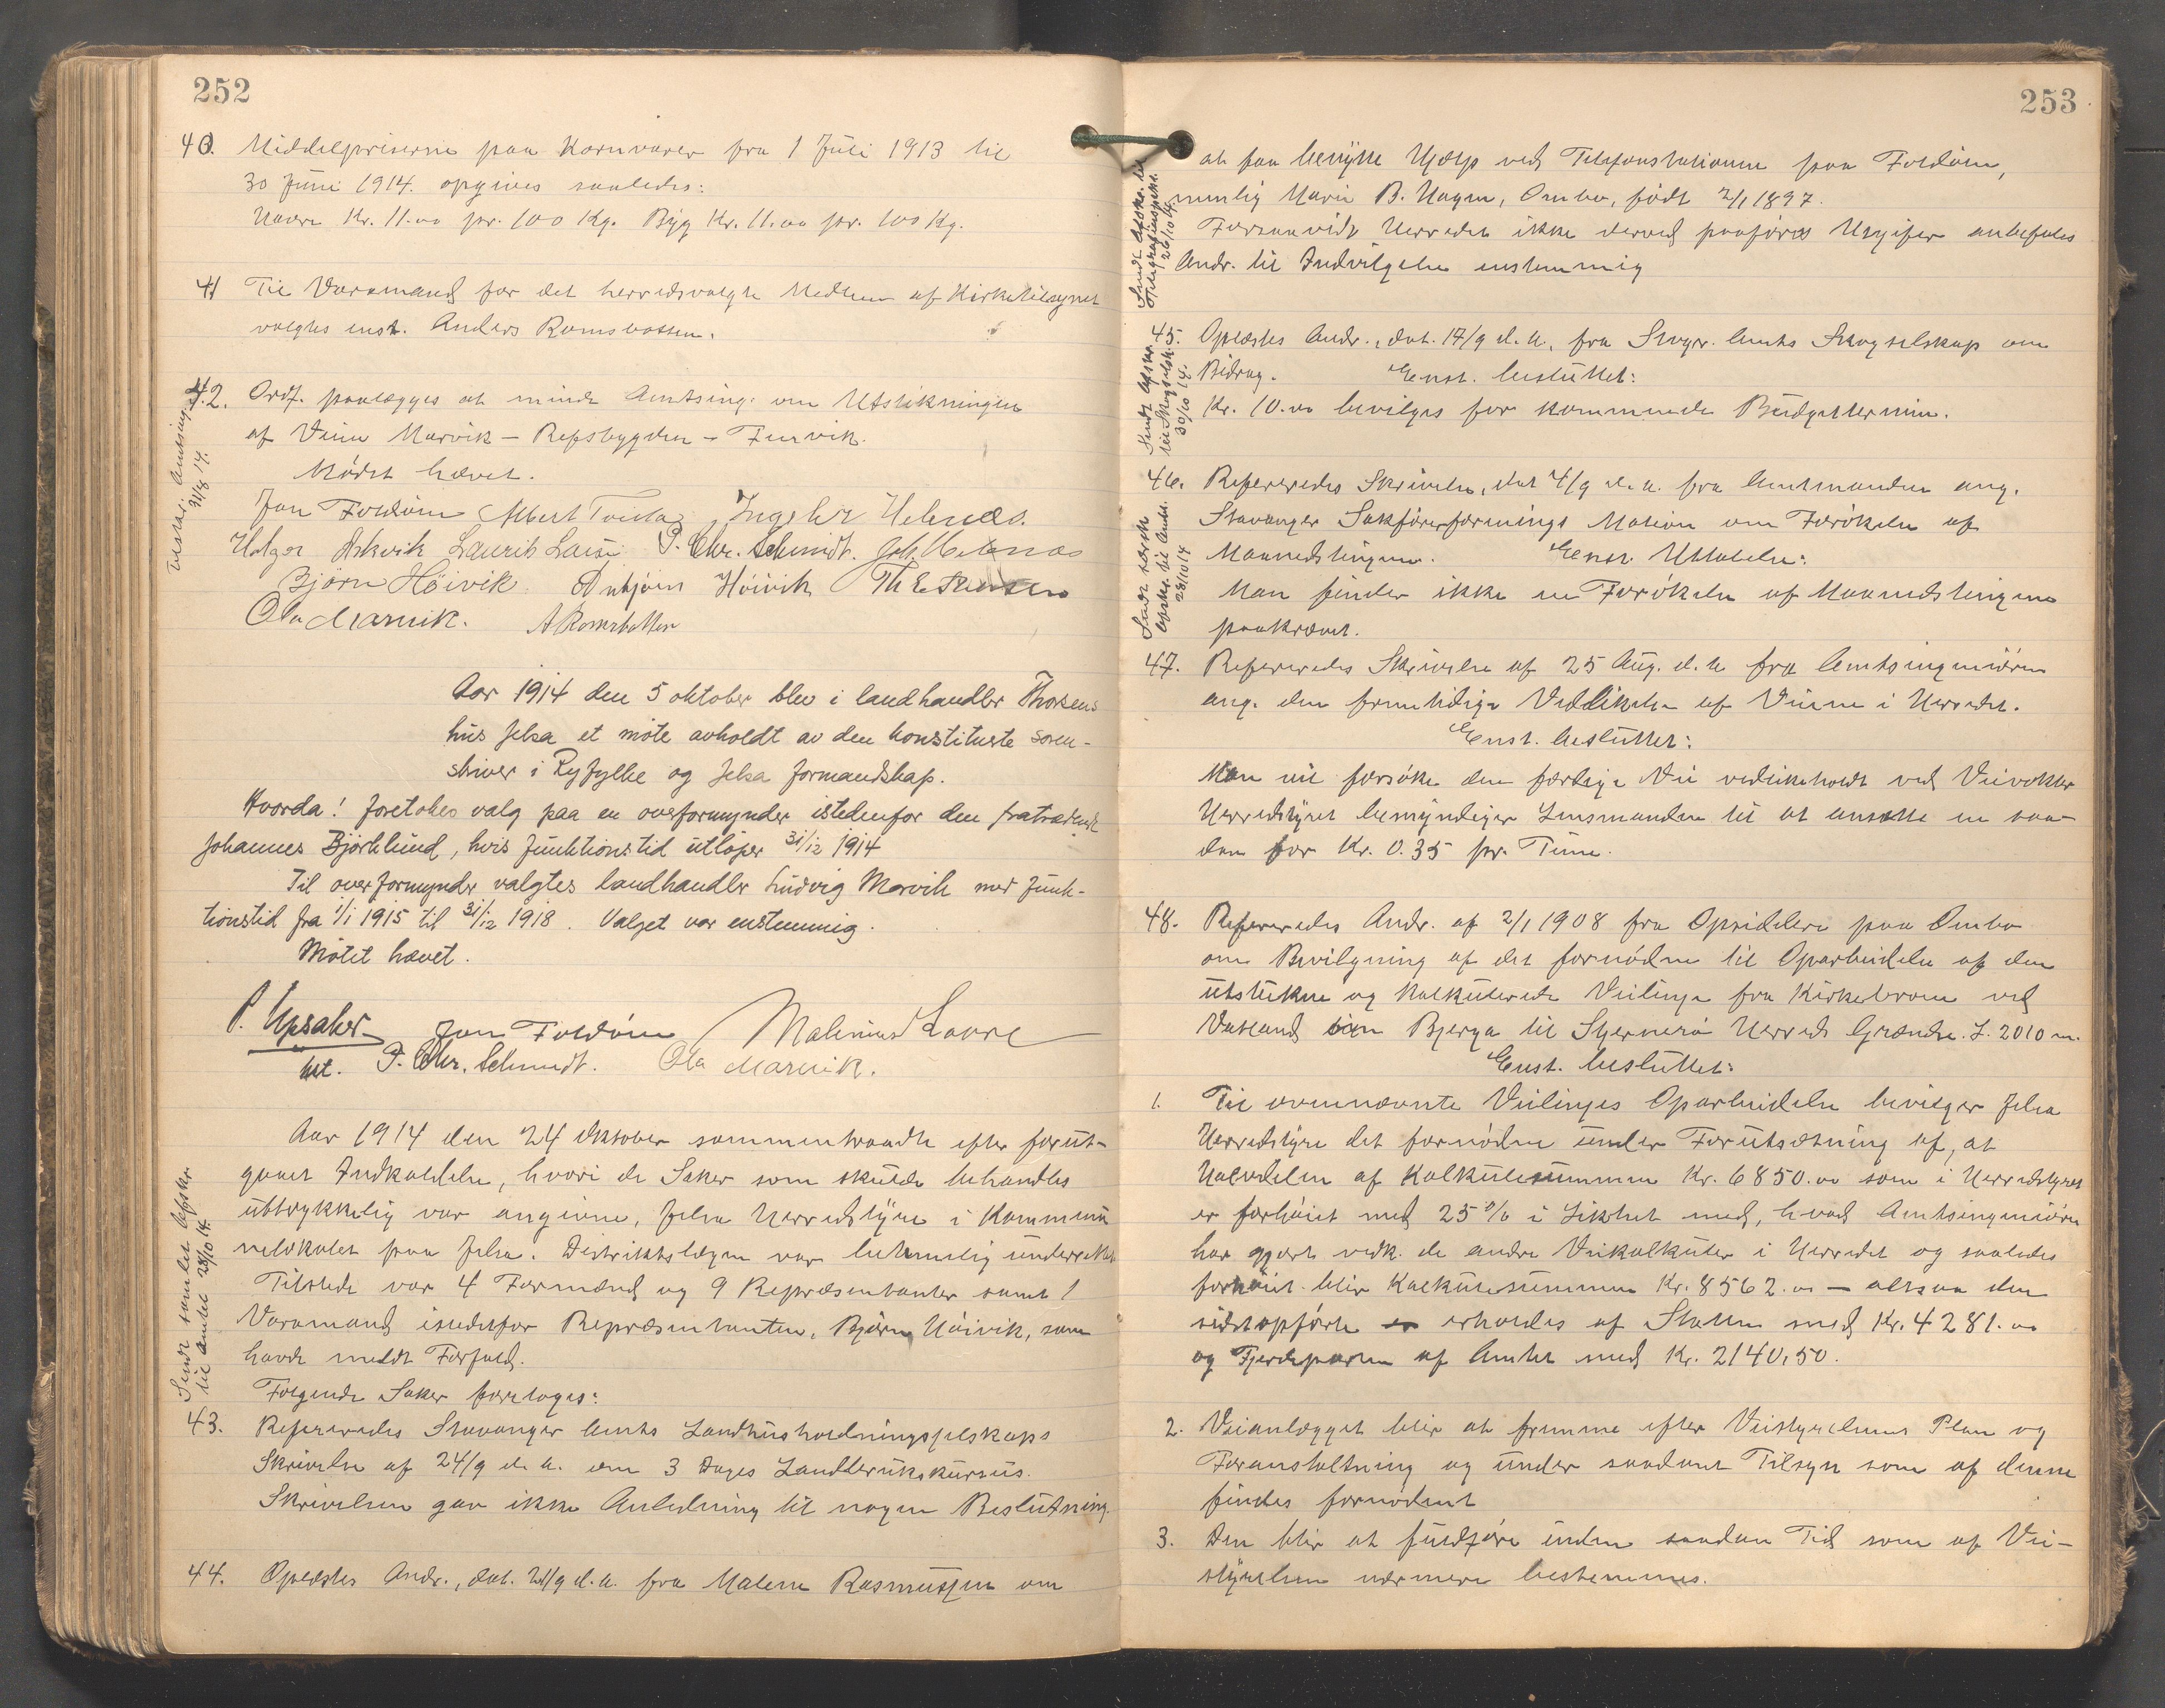 252
40. Middelpriserne paa Kornvarer fra 1 Juli 1913 til
30 Juni 1914. opgives saaledes:
Havre Kr. 11.00 pr. 100 Kg. Byg Kr. 11.00 pr. 100 Kg.
41 Til Varamand for det herredsvalgte Medlem af Kirketilsynet
valgtes enst. Anders Ramsbotten.
42. Ordf. paalægges at minde Amtsing. om Utstikningen
af Veien Marvik - Repsbygden - Furvik.
Mødet hævet.
Jon Foldøen Albert Tveita Ingebr Helnæs.
Holger Askvik Laurits P. Chr. Schmidt. Joh. Helnæs
Bjørn Höivik Anbjørn Høivik Th E
Ola Marvik. A Ramsbotten
Tilskr. Amtsing.
31/8 14.
Aar 1914 den 5 oktober blev i landhandler Thorsens
hus Jelsa et møte avholdt av den konstituerte soren-
skriver i Ryfylke og Jelsa formandskap.
Hvorda! foretokes valg paa en overformynder istedenfor den fratrædende
Johannes Bjørklund, hvis funktionstid utløper 31/12 1914
Til overformynder valgtes landhandler Ludvig Marvik med funk-
tionstid fra 1/1 1915 til 31/12 1918. Valget var enstemmig.
Møtet hævet.
P. Upsaker Jon Foldøen Malenius Lavre
kst. P. Chr. Schmidt. Ola Marvik.
Aar 1914 den 24 Oktober sammentraadte efter forut-
gaaet Indkaldelse, hvori de Saker som skulde behandles
uttrykkelig var angivne, Jelsa Herredstyre i Kommu-
nelokalet paa Jelsa. Distriktslægen var betimelig underrettet
Tilstede var 4 Formænd og 9 Repræsentanter samt 1
Varamand istedetfor Repræsentanten, Bjørn Höivik, som
havde meldt Forfald.
Følgende Saker foretoges:
Sendt samlet Afskr.
til Amtet 28/10 14.
43. Refereredes Stavanger Amts Landhusholdningsselskaps
Skrivelse af 24/9 d. a. om 3 Dages Landbrukskursus.
Skrivelsen gav ikke Anledning til nogen Beslutning.
44. Oplæstes Andr., dat. 21/9 d. a. fra Malene Rasmussen om
253
at faa benytte Hjælp ved Telefonstationen paa Foldøen,
nemlig Marie B. Hagen, Ombo, født 2/1 1897.
Forsaavidt Herredet ikke derved paaføres Utgifter anbefales
Andr. til Indvilgelse enstemmig
Sendt Afskr. til
Telegrafinspekt.
26/10 14.
45. Oplæstes Andr., dat. 17/9 d. a. fra Stvgr. Amts Skogselskap om
Bidrag. Enst. besluttet:
Kr. 10.00 bevilges for kommende Budgettermin.
Sendt Afskr.
til Skogselsk.
30/10 14.
46. Refereredes Skrivelse, dat 4/9 d. a. fra Amtmanden ang.
Stavanger Sakførerforenings Motion om Forøkelse af
Maanedstingene. Enst. Uttalelse:
Man finder ikke en Forøkelse af Maanedstingene
paakrævet.
Sendt særsk.
Afskr. til Amtet.
28/10 14
47. Refereredes Skrivelse af 25 Aug. d. a fra Amtsingeniøren
ang. den fremtidige Vedlikehold af Veiene i Herredet.
Enst. besluttet:
Man vil forsøke den færdige Vei vedlikeholdt ved Veivokter
Herredstyret bemyndiger Lensmanden til at ansætte en saa-
dan for Kr. 0.35 pr. Time.
48. Refereredes Andr. af 2/1 1908 fra Opsiddere paa Ombo
om Bevilgning af det fornødne til Oparbeidelse af den
utstukne og kalkulerede Veilinje fra Kirkebroen ved
Vatland Bjerga til Stjernerø Herreds Grændse. L. 2010 m.
Enst. besluttet:
1. Til ovennævnte Veilinjes Oparbeidelse bevilger Jelsa
Herredstyre det fornødne under Forutsætning af, at
Halvdelen af Kalkulesummen Kr. 6850.00 som i Herredstyret
er forhøiet med 25% i Likhet med, hvad Amtsingeniøren
har gjort vedk. de andre Veikalkuler i Herredet og saaledes
forhøiet blir Kalkulesummen Kr. 8562.00 - altsaa den
sidstopførte erholdes af Staten med Kr. 4281.00
og Fjerdeparten af Amtet med Kr. 2140,50.
2. Veianlægget blir at fremme efter Veistyrelsens Plan og
Foranstaltning og under saadant Tilsyn som af denne
findes fornødent
3. Den blir at fuldføre inden saadan Tid som af Vei-
styrelsen nærmere bestemmes.